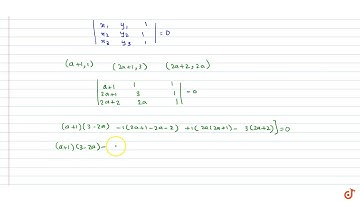 | x₁ y₁ 1 |
| x₂ y₂ 1 | = 0
| x₃ y₃ 1 |
(a+1, 1) (2a+1, 3) (2a+2, 2a)
| a+1 1 1 |
| 2a+1 3 1 | = 0
| 2a+2 2a 1 |
(a+1)(3-2a) -1(2a+1-2a-2) +1(2a(2a+1) - 3(2a+2)] = 0
(a+1)(3-2a) -